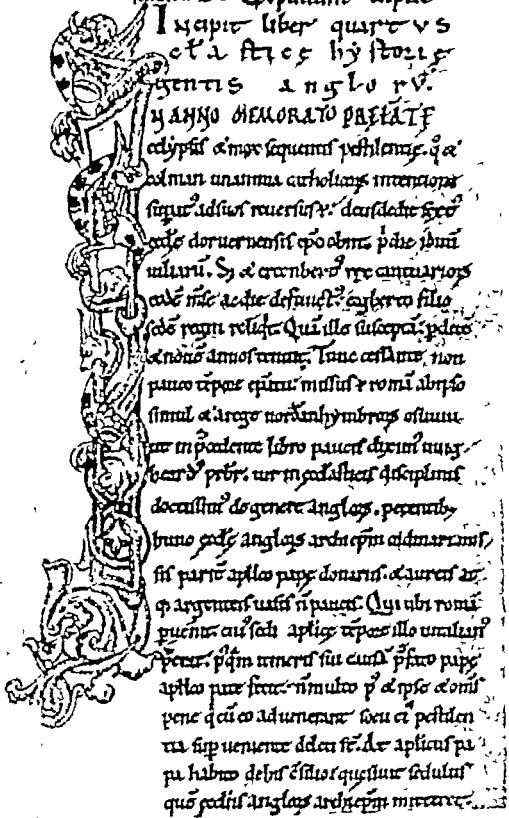 Incipit liber quartVS
ecl'astice hystorię
gentis anglorū.
IN ANNO MEMORATO PREFATE
eclypsis & mox sequentis pestilentię. q° &
colman unanima catholicoꝝ intentione
supatꝰ ad suos reuersus ē. deusdedit sextꝰ
ęcclę doruernensis ep̄c obiit. p̍die iduū
iuliarū. Sꝫ & erconbertꝰ rex cantuarioꝝ
eodē mse ac die defunctꝰ. egberto filio
sedē regni reliqt. Quā ille susceptā p decē
& nouē annos tenuit. Tunc cessante non
pauco tēpore ep̄atu. missus ē romā ab ipso
simul & a rege nordanhymbroꝝ osuuiu
ut in p̄cedente libro paucis diximꝰ uuig
heardꝰ prb̄r. uir in ęccl'asticis disciplinis
doctissimꝰ de genere angloꝝ. petentibꝫ
hunc ęcclę angloꝝ archiep̄m ordinari. mis
sis parit̄ apl'ico papę donariis. & aureis at
q; argenteis uasis ñ paucis. Qui ubi romā
puenit. cuiꝰ sedi aplicę tēpore illo uitalianꝰ
p̄erat. p̍qm itineris sui causā p̄fato papę
apl'ico pate fecit. ñ multo p̍ & ipse & om̄s
pene q̍ cū eo aduenerant socii eiꝰ pestilen
tia sup ueniente deleti st̄. At aplicus pa
pa habito de his c̄silio quęsiuit sedulus
quē ęccl'iis angloꝝ archiep̄m mitteret.